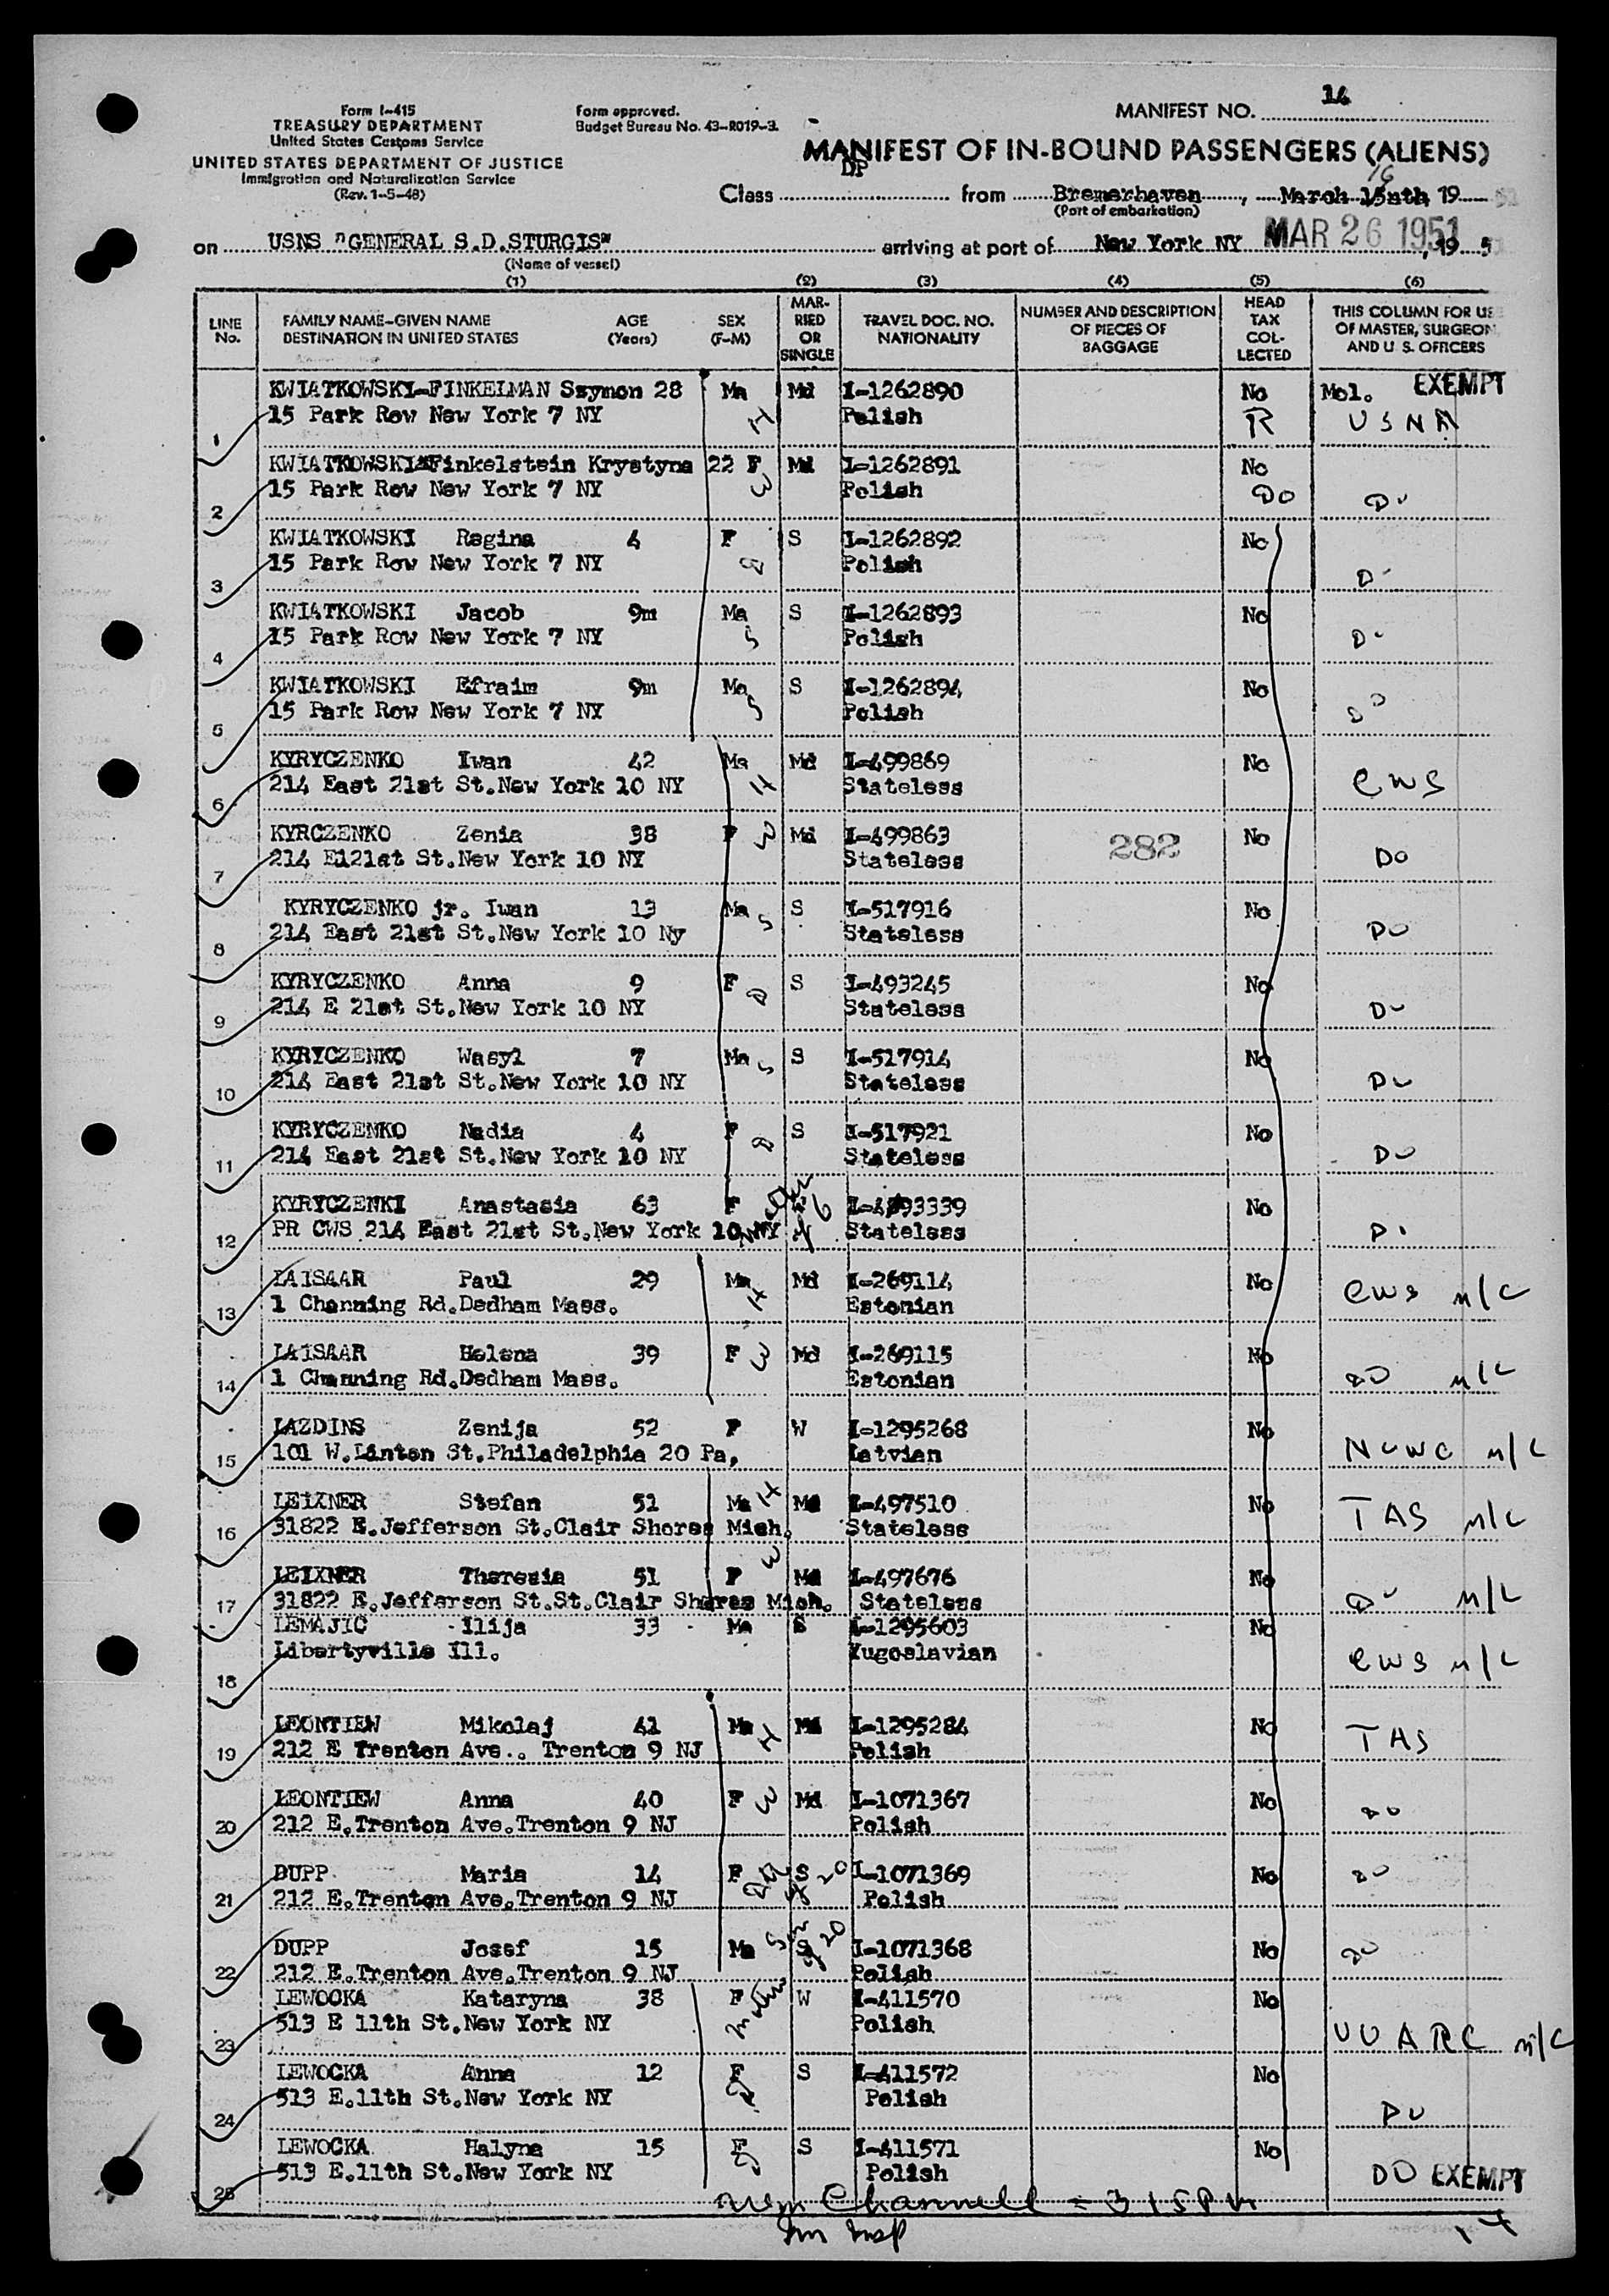 Form I-415
TREASURY DEPARTMENT
United States Customs Service
UNITED STATES DEPARTMENT OF JUSTICE
Immigration and Naturalization Service
(Rev. 1-5-48)
Form approved.
Budget Bureau No. 43-R019-3.
MANIFEST NO. 14
MANIFEST OF IN-BOUND PASSENGERS (ALIENS)
Class DP from Bremerhaven, March 15nth, 19 51
16
(Port of embarkation)
on USNS "GENERAL S.D.STURGIS" arriving at port of New York NY MAR 26 1951, 19 5
(Name of vessel)
(1) (2) (3) (4) (5) (6)
LINE No. FAMILY NAME-GIVEN NAME DESTINATION IN UNITED STATES AGE (Years) SEX (F-M) MARRIED OR SINGLE TRAVEL DOC. NO. NATIONALITY NUMBER AND DESCRIPTION OF PIECES OF BAGGAGE HEAD TAX COLLECTED THIS COLUMN FOR USE OF MASTER, SURGEON, AND U. S. OFFICERS
KWIATKOWSKI-FINKELMAN Szymon 28 Ma Md I-1262890 No Mol. EXEMPT
1 15 Park Row New York 7 NY H Polish R USNA
KWIATKOWSKI-Finkelstein Krystyna 22 F Md I-1262891 No
2 15 Park Row New York 7 NY W Polish DO Do
KWIATKOWSKI Regina 4 F S I-1262892 No
3 15 Park Row New York 7 NY D Polish Do
KWIATKOWSKI Jacob 9m Ma S I-1262893 No
4 15 Park Row New York 7 NY S Polish Do
KWIATKOWSKI Efraim 9m Ma S I-1262894 No
5 15 Park Row New York 7 NY S Polish Do
KYRYCZENKO Iwan 42 Ma Md I-499869 No
6 214 East 21st St.New York 10 NY H Stateless CWS
KYRCZENKO Zenia 38 F W Md I-499863 282 No
7 214 E121st St.New York 10 NY Stateless Do
KYRYCZENKO jr. Iwan 13 Ma S S I-517916 No
8 214 East 21st St.New York 10 Ny Stateless Do
KYRYCZENKO Anna 9 F D S I-493245 No
9 214 E 21st St.New York 10 NY Stateless Do
KYRYCZENKO Wasyl 7 Ma S S I-517914 No
10 214 East 21st St.New York 10 NY Stateless Do
KYRYCZENKO Nadia 4 F D S I-517921 No
11 214 East 21st St.New York 10 NY Stateless Do
KYRYCZENKI Anastasia 63 F Mother of 6 No
12 PR CWS 214 East 21st St.New York 10 NY Stateless Do
LAISAAR Paul 29 Ma H Md I-269114 No
13 1 Channing Rd.Dedham Mass. Estonian CWS n/c
LAISAAR Helena 39 F W Md I-269115 No
14 1 Channing Rd.Dedham Mass. Estonian DO n/c
LAZDINS Zenija 52 F W I-1295268 No
15 101 W.Linton St.Philadelphia 20 Pa, Latvian NCWC n/c
LEIXNER Stefan 51 Ma H Md I-497510 No
16 31822 E.Jefferson St.Clair Shores Mich. Stateless TAS n/c
LEIXNER Theresia 51 F W Md I-497676 No
17 31822 E.Jefferson St.St.Clair Shores Mich. Stateless Do n/c
LEMAJIC Ilija 33 Ma S I-1295603 No
18 Libertyville Ill. Yugoslavian CWS n/c
LEONTIEW Mikolaj 41 Ma H Md I-1295284 No
19 212 E Trenton Ave.. Trenton 9 NJ Polish TAS
LEONTIEW Anna 40 F W Md I-1071367 No
20 212 E.Trenton Ave.Trenton 9 NJ Polish Do
DUPP Maria 14 F S I-1071369 No
21 212 E.Trenton Ave.Trenton 9 NJ Da of 20 Polish Do
DUPP Josef 15 Ma S I-1071368 No
22 212 E.Trenton Ave.Trenton 9 NJ Son of 20 Polish Do
LEWOCKA Kataryna 38 F Mother W I-411570 No
23 513 E 11th St.New York NY Polish UUARC n/c
LEWOCKA Anna 12 F D S I-411572 No
24 513 E.11th St.New York NY Polish Do
LEWOCKA Halyna 15 F D S I-411571 No
25 513 E.11th St.New York NY Polish DO EXEMPT
Channell = 315 PM
Im Insp